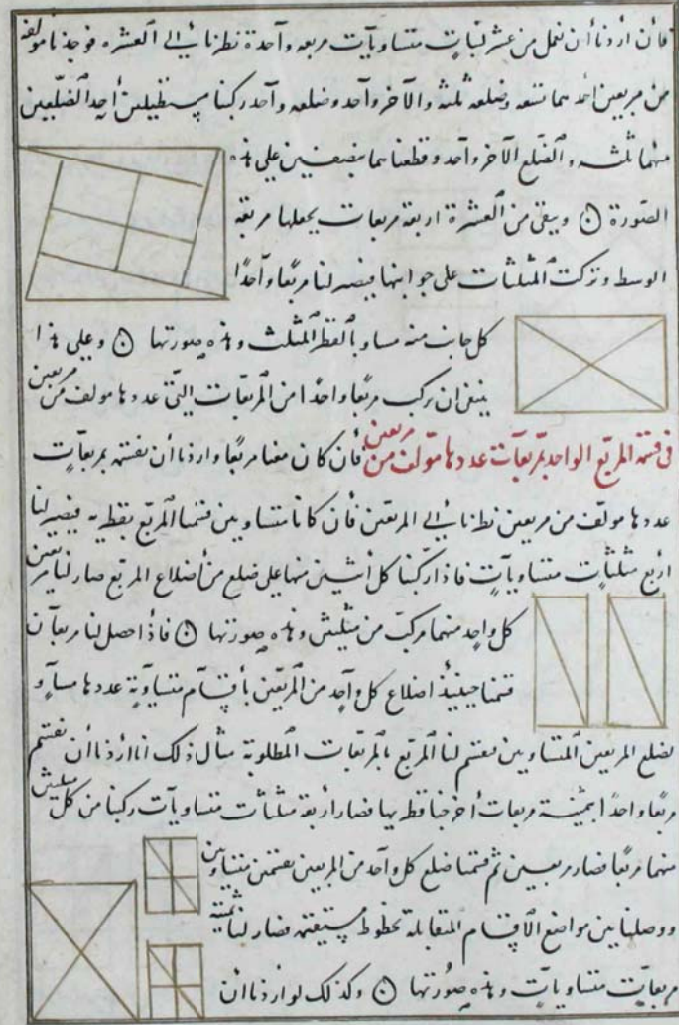 فان اردنا أن نعمل من عشر لبنات متساويات مربعه واحدة نظرنا الى العشره فوجدنا مولفه
من مربعين احدهما تسعه وضلعه ثلثة والآخر واحد وضلعه واحد ركبنا مستطيلين أحد الضلعين
منهما ثلثه والضلع الآخر واحد وقطعناهما بنصفين على هذه
الصورة ويبقى من العشرة اربعة مربعات يجعلها مربعة
الوسط وتركت المثلثات على جوانبها فيصير لنا مربعًا واحدًا
كل جانب منه مساو بالقطر المثلث وهذه صورتها وعلى هذا
ينبغى ان يركب مربعًا واحدًا من المربعات التى عددها مولف من مربعين
فى قسمة المربع الواحد بمربعات عددها مؤلف من مربعين فأن كان معنا مربعًا واردنا أن نقسمه بمربعات
عددها مولف من مربعين نظرنا الى المربعين فأن كانا متساويين قسمنا المربع بقطريه فيصير لنا
اربع مثلثات متساويات فاذا ركبنا كل أثنين منها على ضلع من أضلاع المربع صار لنا مربعين
كل واحد منهما مركب من مثلثين وهذه صورتها فاذا حصل لنا مربعان
قسمنا حينئذ اضلاع كل واحد من المربعين بأقسام متساوية عددها مساو
لضلع المربعين المتساويين فقسم لنا المربع بالمربعات المطلوبة مثال ذلك انا اردنا أن نقسم
مربعًا واحدًا بثمنية مربعات أخرجنا قطريها فصار أربعة مثلثات متساويات ركبنا من كل مثلثين
منهما مربعًا فصار مربعين ثم قسمنا ضلع كل واحد من المربعين بقسمين متساويين
ووصلنا بين مواضع الأقسام المتقابلة بخطوط مستقيمة فصار لنا ثمنية
مربعات متساويات وهذه صورتها وكذلك لو اردنا أن